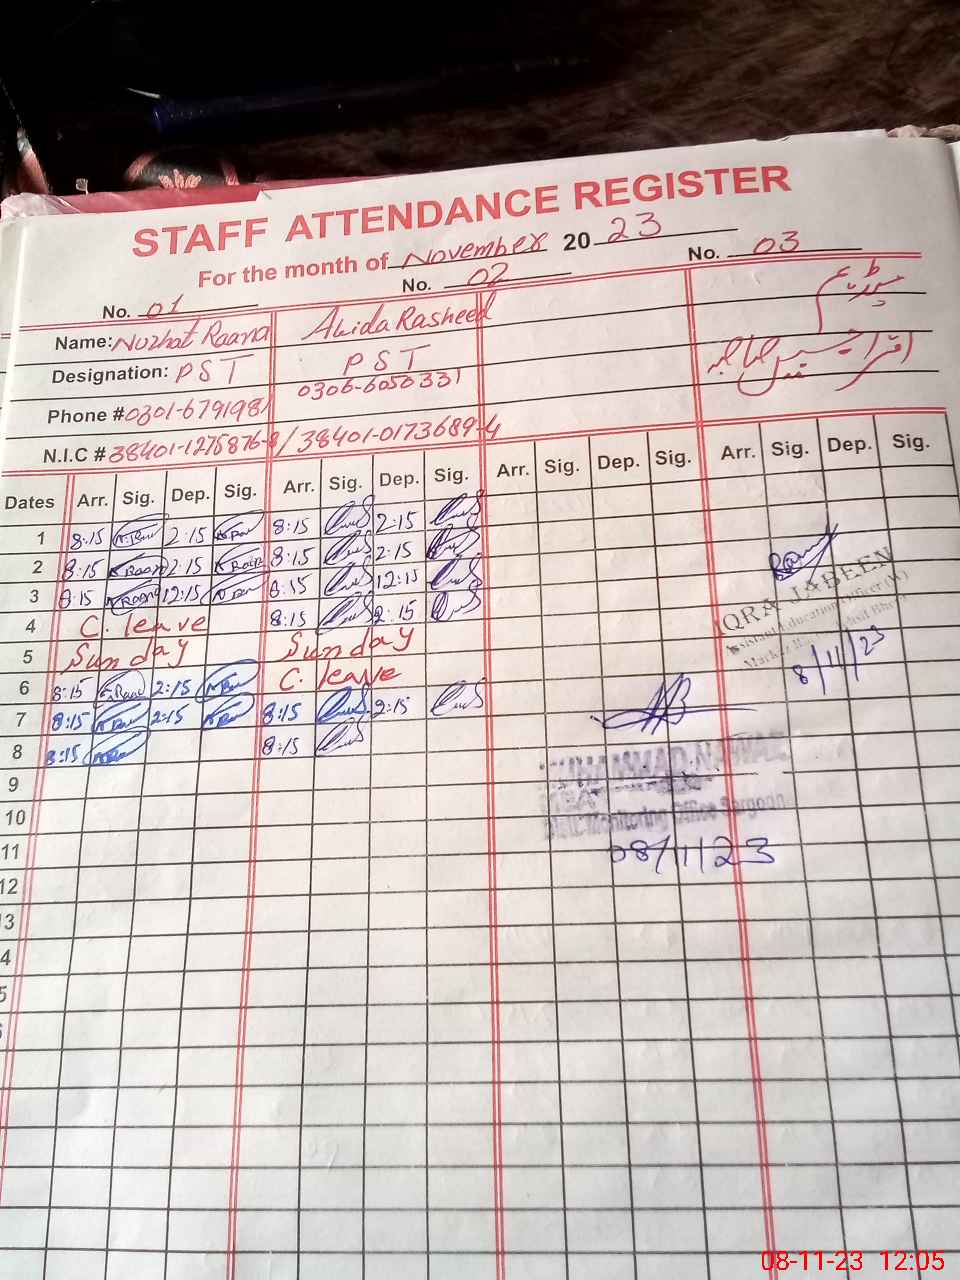 STAFF ATTENDANCE REGISTER
For the month of November 2023
No. 01 No. 02 No. 03
Name: Nuzhat Raana Abida Rasheed
Designation: PST PST
Phone # 0301-6791981 0306-6050331
N.I.C # 38401-1275876-8 / 38401-0173689-4
Dates Arr. Sig. Dep. Sig. Arr. Sig. Dep. Sig. Arr. Sig. Dep. Sig. Arr. Sig. Dep. Sig.
1 8:15 2:15 8:15 2:15
2 8:15 2:15 8:15 2:15
3 8:15 12:15 8:15 12:15
4 C. leave 8:15 2:15
5 Sunday Sunday
6 8:15 2:15 C. leave
7 8:15 2:15 8:15 2:15
8 8:15 8:15
9
10
11
12
13
4
5
IQRA JABEEN
Assistant Education Officer
8/11/23
MUHAMMAD NAWAZ
Monitoring Office
08/11/23
08-11-23 12:05